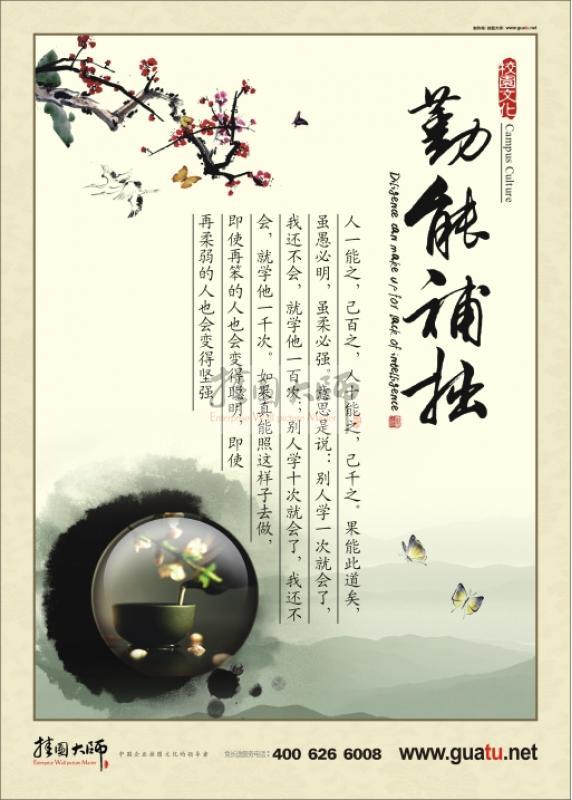 www.guatu.net
校园文化
Campus Culture
勤能补拙
Diligence can make up for lack of intelligence
人一能之，己百之，人十能之，己千之。果能此道矣，
虽愚必明，虽柔必强。意思是说：别人学一次就会了，
我还不会，就学他一百次；别人学十次就会了，我还不
会，就学他一千次。如果真能照这样子去做，
即使再笨的人也会变得聪明，即使
再柔弱的人也会变得坚强
挂图大师
Enterprise Wall picture Master
挂图大师
Enterprise Wall picture Master
中国企业挂图文化的领导者
400 626 6008
www.guatu.net